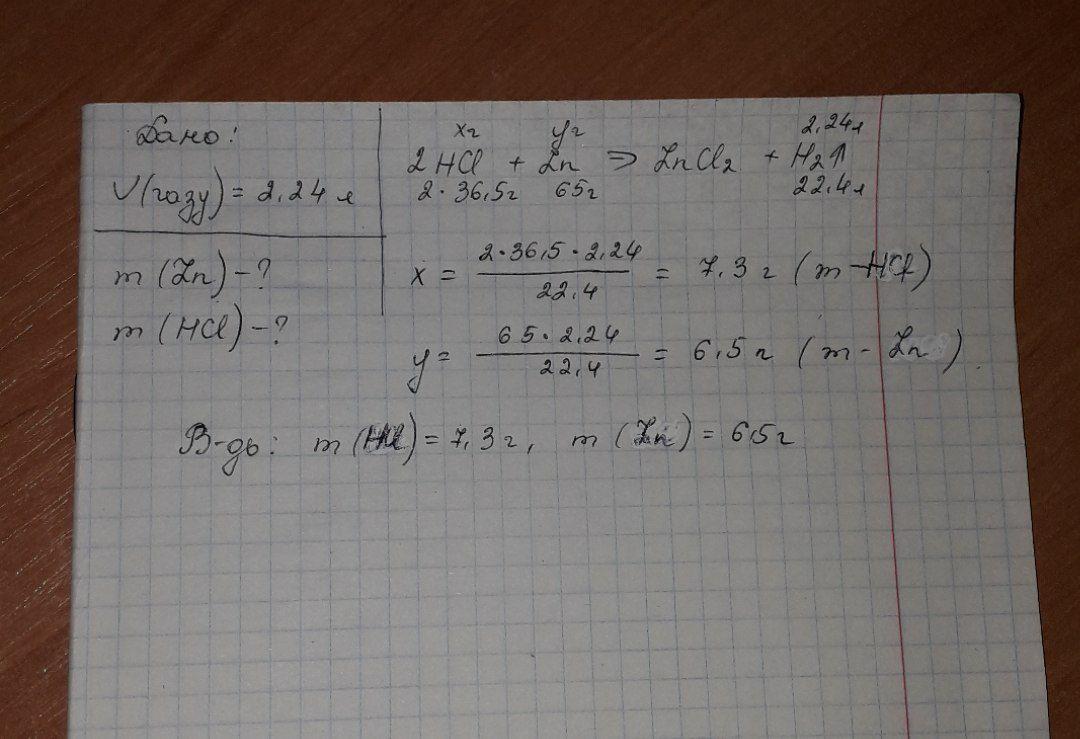 Дано:
V(газу) = 2,24 л
m (Zn) - ?
m (HCl) - ?
xг yг 2,24л
2HCl + Zn ⇒ ZnCl₂ + H₂↑
2·36,5г 65г 22,4л
x = 2·36,5·2,24 / 22,4 = 7,3 г (m - HCl)
y = 65·2,24 / 22,4 = 6,5 г (m - Zn)
В-дь: m (HCl) = 7,3 г, m (Zn) = 6,5г